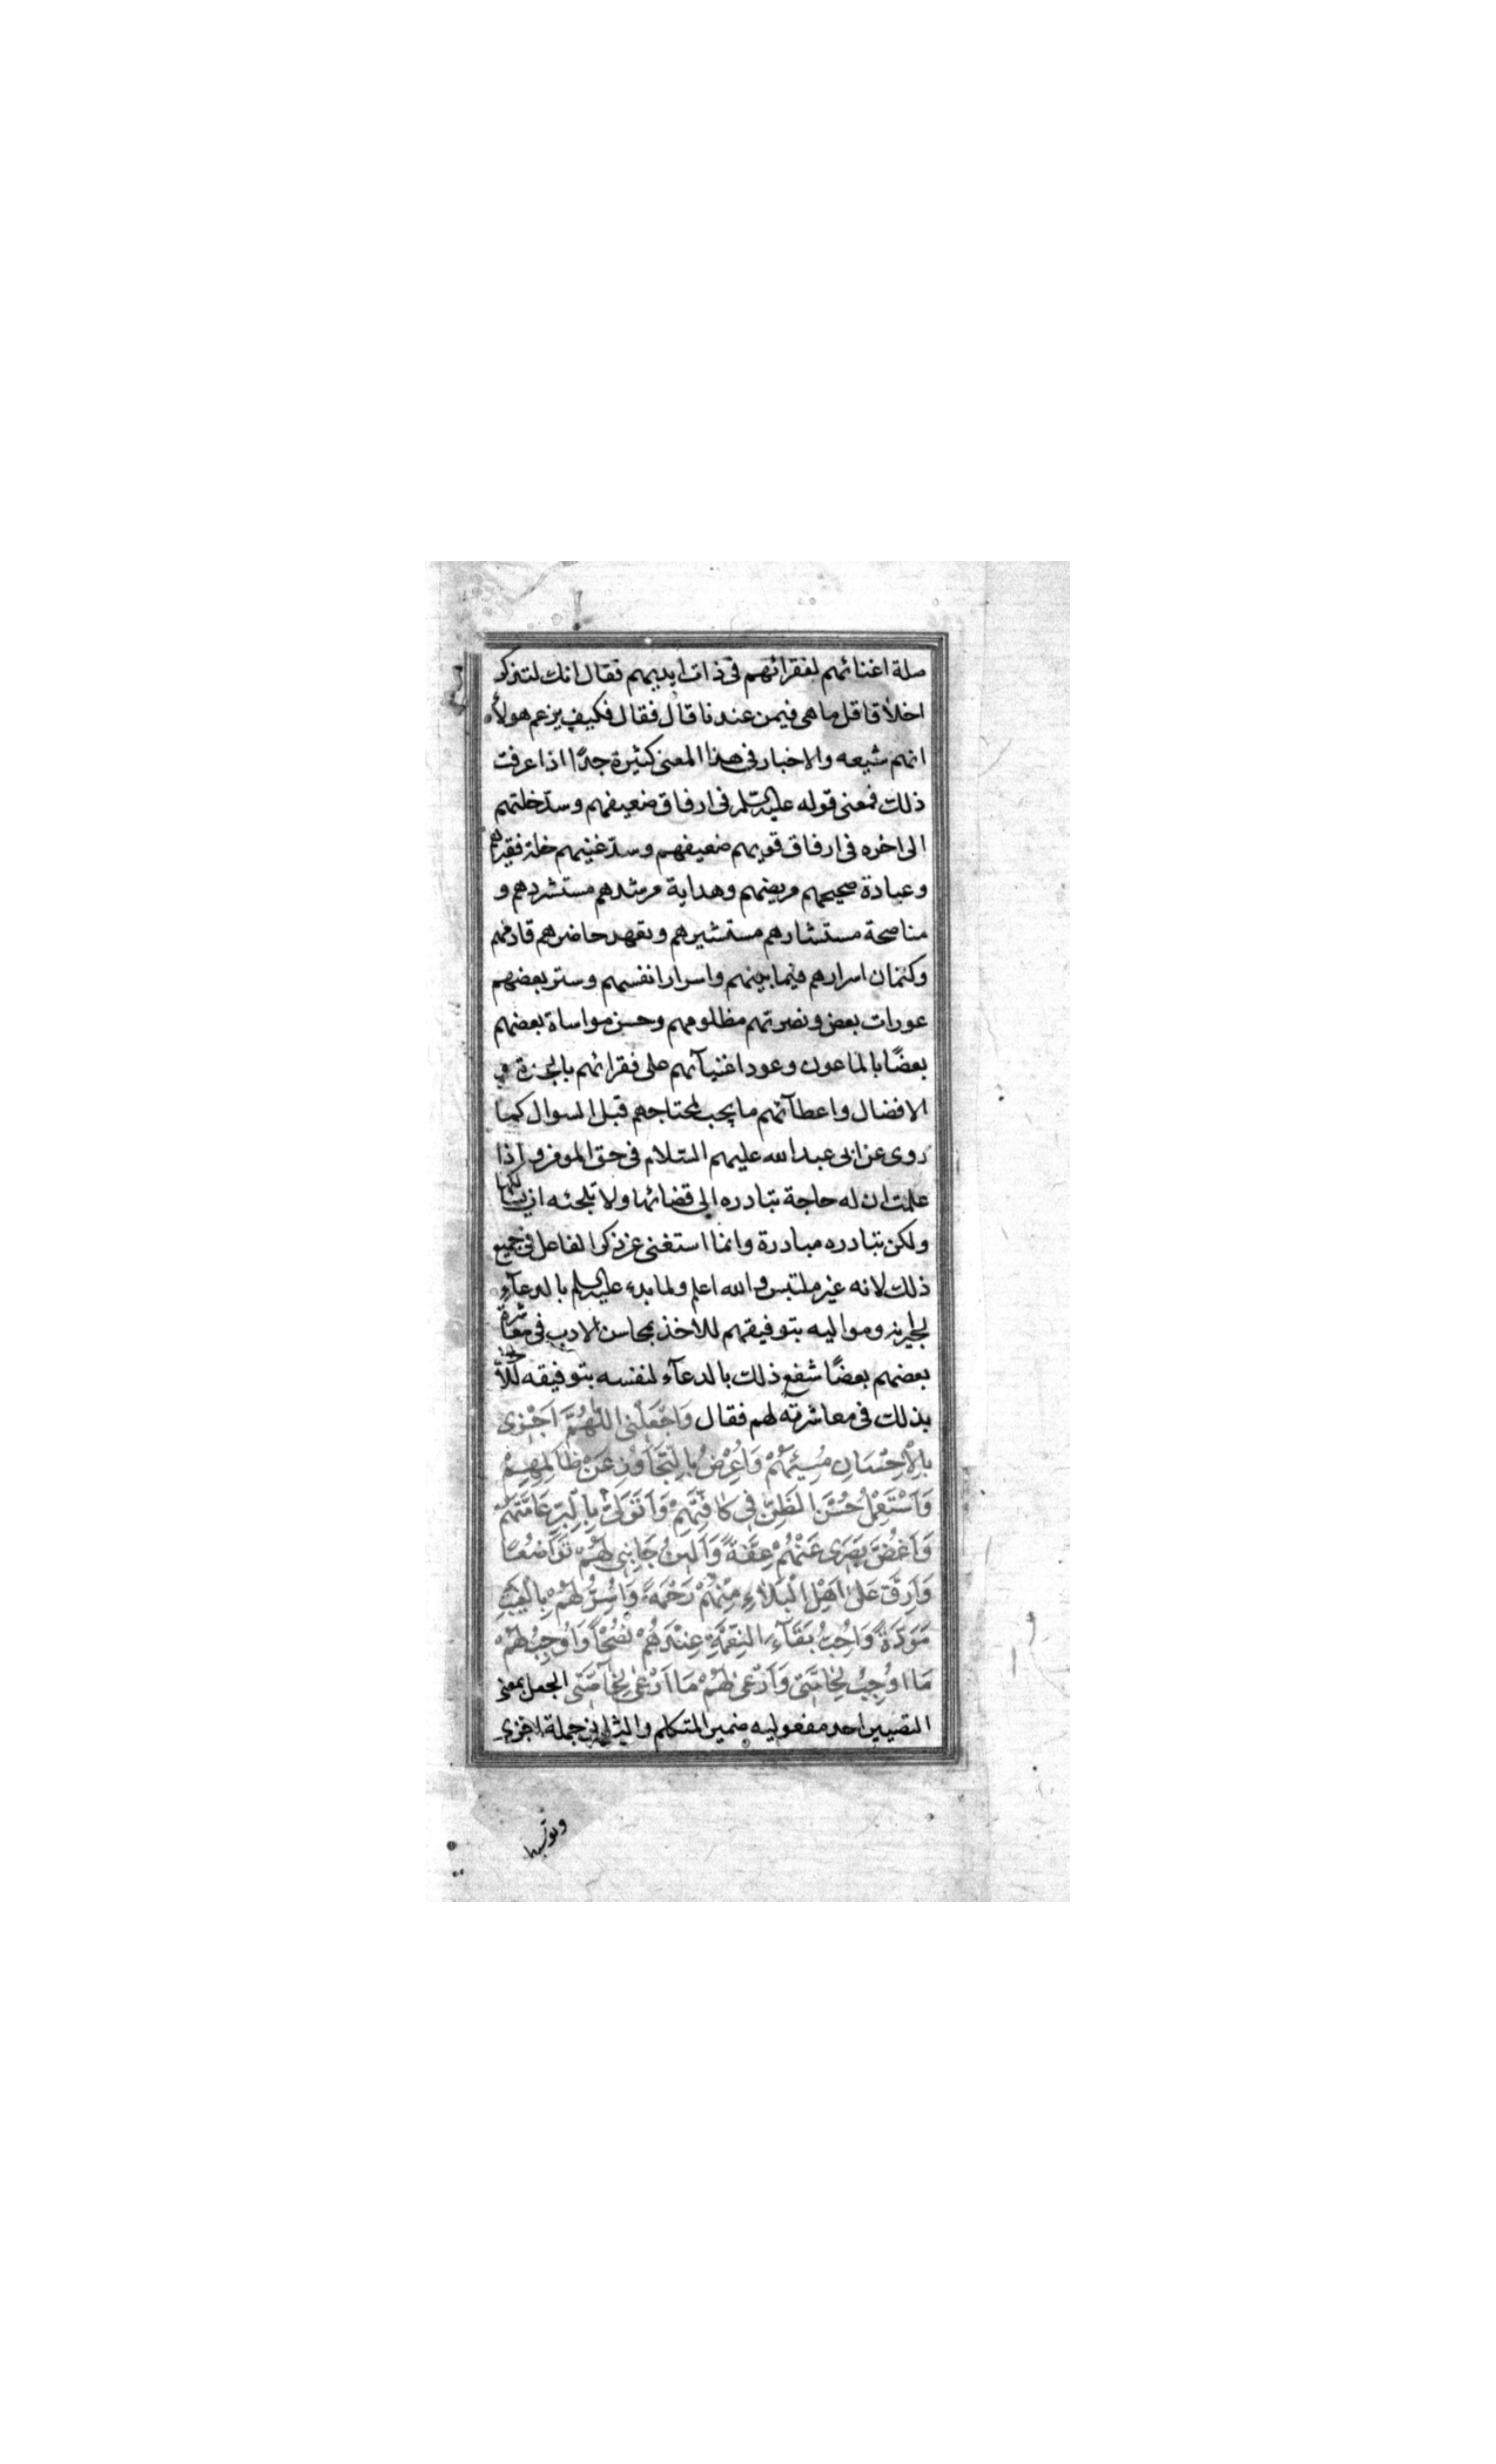 صلة اغنيائهم لفقرائهم فى ذات ايديهم فقال انك لتذكر
اخلاقا قل ما هى فيمن عندنا قال فقال فكيف يزعم هولاء
انهم شيعه والاخبار فى هذا المعنى كثيرة جدّا اذا عرفت
ذلك فمعنى قوله عليه السلم فى ارفاق ضعيفهم وسدّ خلتهم
الى اخره فى ارفاق قويهم ضعيفهم وسدّ غنيهم خلة فقيرهم
وعيادة صحيحهم مريضهم وهداية مرشدهم مسترشدهم و
مناصحة مستشارهم مستشيرهم وتعهد حاضرهم قادمهم
وكتمان اسرارهم فيما بينهم واسرار انفسهم وستر بعضهم
عورات بعض ونصرتهم مظلومهم وحسن مواساة بعضهم
بعضًا بالماعون وعود اغنيآئهم على فقرائهم بالجدة و
الافضال واعطآئهم ما يجب لمحتاجهم قبل السوال كما
روى عن ابى عبد الله عليهم السّلام فى حق الموفر واذا
علمت ان له حاجة تبادره الى قضائها ولا تلجئه ان يسألكها
ولكن تبادره مبادرة وانما استغنى عن ذكر الفاعل فى جميع
ذلك لانه غير ملتبس والله اعلم ولما بدء عليه السلم بالدعآء
لجيرنه ومواليه بتوفيقهم للاخذ بمحاسن الادب فى معاشرة
بعضهم بعضًا شفع ذلك بالدعآء لنفسه بتوفيقه للأخذ
بذلك فى معاشرته لهم فقال وَاجْعَلْنِى اللّٰهُمَّ اَجْزِى
بِالْاِحْسَانِ مُسِيْئَهُمْ وَاُعْرِضُ بِالتَّجَاوُزِ عَنْ ظَالِمِهِمْ
وَاَسْتَعْمِلُ حُسْنَ الظَّنِّ فِى كَافَّتِهِمْ وَاَتَوَلّىٰ بِالْبِرِّ عَامَّتَهُمْ
وَاَغُضُّ بَصَرِى عَنْهُمْ عِفَّةً وَاُلِينُ جَانِبِى لَهُمْ تَوَاضُعًا
وَاَرِقُّ عَلىٰ اَهْلِ الْبَلَاءِ مِنْهُمْ رَحْمَةً وَاُسِرُّ لَهُمْ بِالْغَيْبِ
مَوَدَّةً وَاُحِبُّ بَقَآءَ النِّعْمَةِ عِنْدَهُمْ نُصْحًا وَاُوجِبُ لَهُمْ
مَا اُوجِبُ لِحَامَّتِى وَاَرْعىٰ لَهُمْ مَا اَرْعىٰ لِخَآصَّتِى الجعل بمعنى
التصيير احد مفعوليه ضمير المتكلم والثانى جملة اجزى